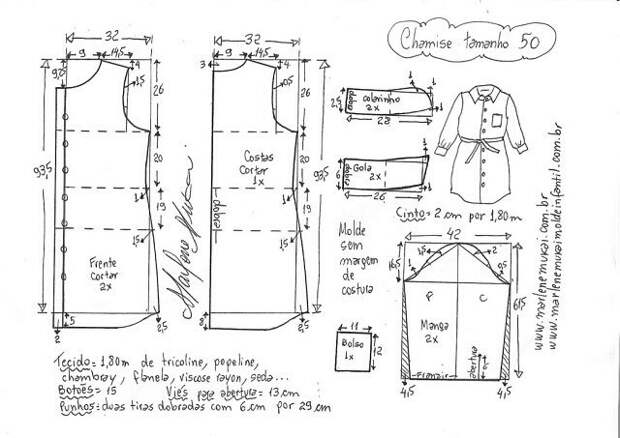 Chamise tamanho 50
32
9
14,5
9,5
4
1,5
26
93,5
20
1,5
19
15
Frente
Cortar
2x
5
2
2,5
32
3
9
14,5
4
0,5
26
93,5
Costas
Cortar
1x
20
1,5
dobra
19
15
2
2,5
2,5
dobra
colarinho
2x
1
1
28
6
dobra
Gola
2x
1
26
Cinto = 2 cm por 1,80m
Molde
sem
margem
de
costura
11
Bolso
1x
12
42
16,5
1,5
2
1
0,5
P
C
61,5
Manga
2x
abertura
Franzir
4,5
4,5
Tecido = 1,80m de tricoline, popeline,
chambray, flanela, viscose rayon, seda...
Botões = 15 Viés para abertura = 13 cm
Punhos: duas tiras dobradas com 6 cm por 29 cm
www.marlenemukai.com.br
www.marlenemukaimoldeinfantil.com.br